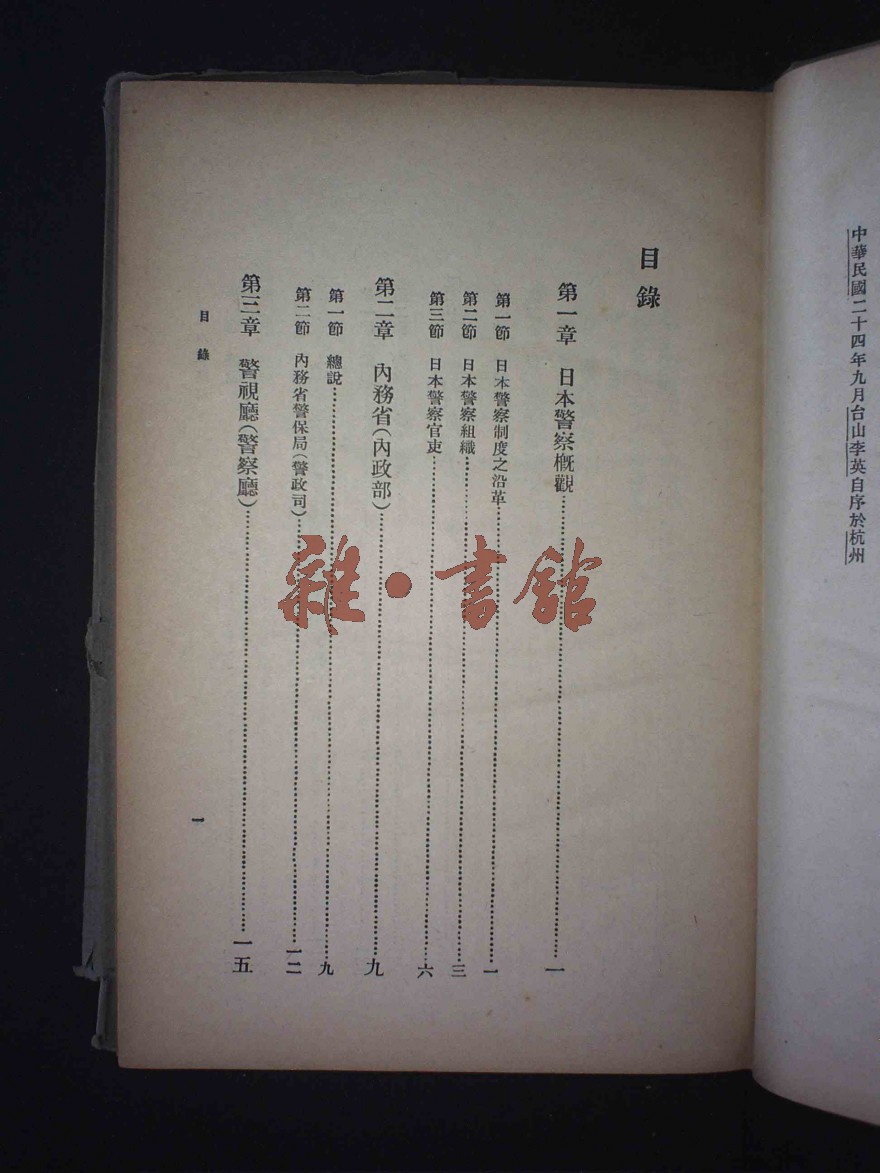 中華民國二十四年九月台山李英自序於杭州
目錄
第一章 日本警察概觀……一
第一節 日本警察制度之沿革……一
第二節 日本警察組織……三
第三節 日本警察官吏……六
第二章 內務省(內政部)……九
第一節 總說……九
第二節 內務省警保局(警政司)……一二
第三章 警視廳(警察廳)……一五
目錄
一
雜·書館